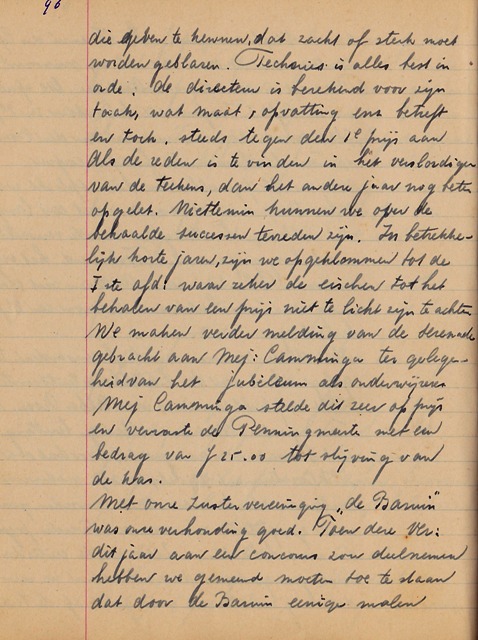 96
die geven te kennen, dat zacht of sterk moet
worden geblazen. Technies is alles best in
orde. De directeur is berekend voor zijn
taak, wat maat, opvatting enz betreft
en toch steeds tegen den 1e prijs aan
Als de reden is te vinden in het verslordigen
van de tekens, dan het andere jaar nog beter
opgelet. Niettemin kunnen we over de
behaalde successen tevreden zijn. In betrekke-
lijk korte jaren, zijn we opgeklommen tot de
Iste afd: waar zeker de eischen tot het
behalen van een prijs niet te licht zijn te achten
We maken verder melding van de serenade
gebracht aan Mej: Camminga ter gelegen-
heid van het jubileum als onderwijzeres
Mej Camminga stelde dit zeer op prijs
en verraste de Penningmeester met een
bedrag van f 25.00 tot stijving van
de kas.
Met onze zustervereeniging „de Bazuin"
was onze verhouding goed. Toen deze Ver:
dit jaar aan een concours zou deelnemen
hebben we gemeend moeten toe te staan
dat door de Bazuin eenige malen